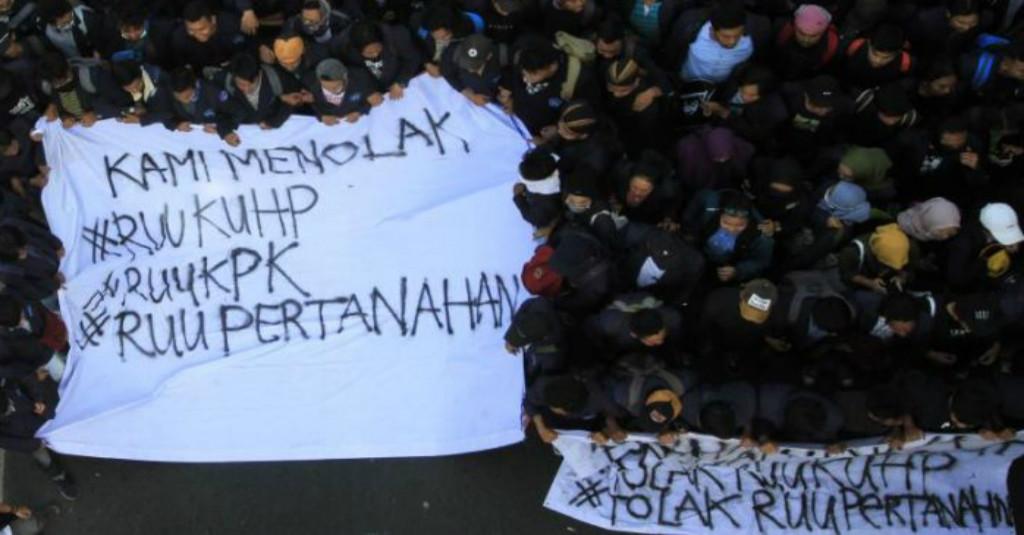 KAMI MENOLAK
#RUU KUHP
#RUU KPK
#RUU PERTANAHAN
TOLAK RUU KUHP
#TOLAK RUU PERTANAHN